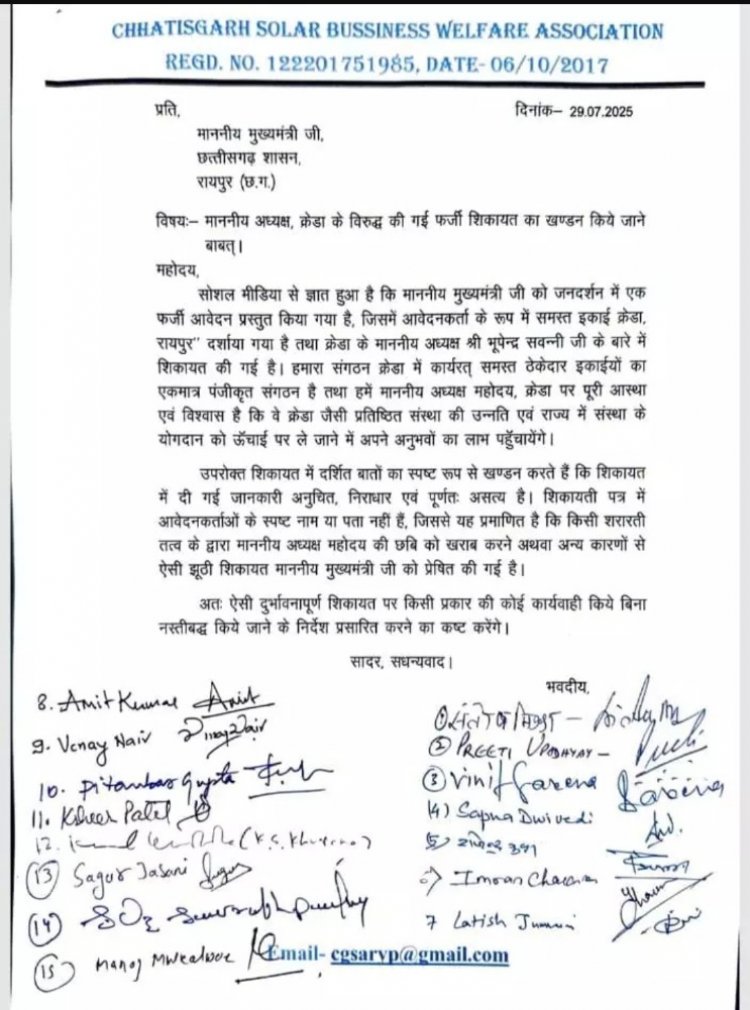 CHHATISGARH SOLAR BUSSINESS WELFARE ASSOCIATION
REGD. NO. 122201751985, DATE- 06/10/2017
प्रति,
दिनांक– 29.07.2025
माननीय मुख्यमंत्री जी,
छत्तीसगढ़ शासन,
रायपुर (छ.ग.)
विषयः– माननीय अध्यक्ष, क्रेडा के विरुद्ध की गई फर्जी शिकायत का खण्डन किये जाने
बाबत्।
महोदय,
सोशल मीडिया से ज्ञात हुआ है कि माननीय मुख्यमंत्री जी को जनदर्शन में एक
फर्जी आवेदन प्रस्तुत किया गया है, जिसमें आवेदनकर्ता के रूप में समस्त इकाई क्रेडा,
रायपुर" दर्शाया गया है तथा क्रेडा के माननीय अध्यक्ष श्री भूपेन्द्र सवन्नी जी के बारे में
शिकायत की गई है। हमारा संगठन क्रेडा में कार्यरत् समस्त ठेकेदार इकाईयों का
एकमात्र पंजीकृत संगठन है तथा हमें माननीय अध्यक्ष महोदय, क्रेडा पर पूरी आस्था
एवं विश्वास है कि वे क्रेडा जैसी प्रतिष्ठित संस्था की उन्नति एवं राज्य में संस्था के
योगदान को ऊँचाई पर ले जाने में अपने अनुभवों का लाभ पहुँचायेंगे।
उपरोक्त शिकायत में दर्शित बातों का स्पष्ट रूप से खण्डन करते हैं कि शिकायत
में दी गई जानकारी अनुचित, निराधार एवं पूर्णतः असत्य है। शिकायती पत्र में
आवेदनकर्ताओं के स्पष्ट नाम या पता नहीं हैं, जिससे यह प्रमाणित है कि किसी शरारती
तत्व के द्वारा माननीय अध्यक्ष महोदय की छबि को खराब करने अथवा अन्य कारणों से
ऐसी झूठी शिकायत माननीय मुख्यमंत्री जी को प्रेषित की गई है।
अतः ऐसी दुर्भावनापूर्ण शिकायत पर किसी प्रकार की कोई कार्यवाही किये बिना
नस्तीबद्ध किये जाने के निर्देश प्रसारित करने का कष्ट करेंगे।
सादर, सधन्यवाद।
भवदीय,
① –
② PREETI UPADHYAY –
③ Vinit
(4) Sapna Dwivedi
5)
Imran
7 Latish
8. Amit Kumar Amit
9. Venay Nair
10. Pitambar Gupta
11. Patel
12.
(13) Sagar Jasani
(14)
(15) Manoj
Email- cgsarvp@gmail.com